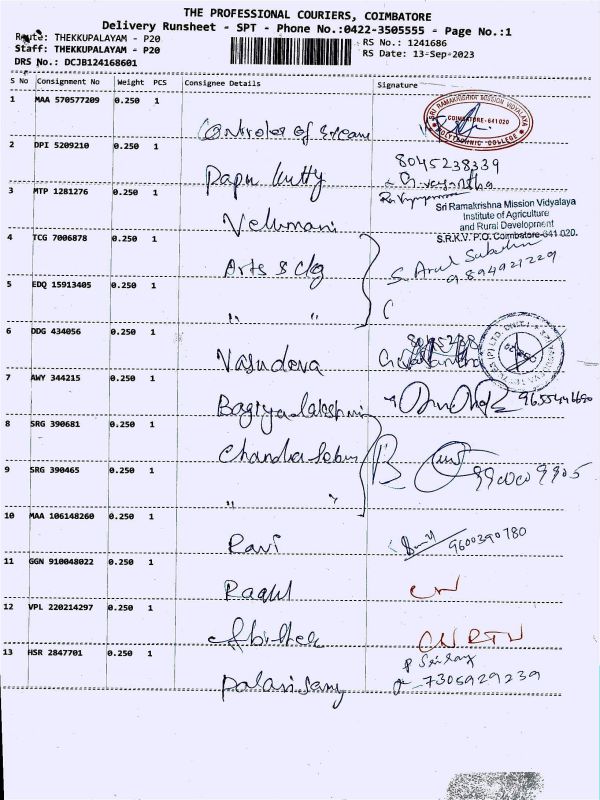 THE PROFESSIONAL COURIERS, COIMBATORE
Delivery Runsheet - SPT - Phone No.:0422-3505555 - Page No.:1
Route: THEKKUPALAYAM - P20
Staff: THEKKUPALAYAM - P20
DRS No.: DCJB124168601
RS No.: 1241686
RS Date: 13-Sep-2023
S No Consignment No Weight PCS Consignee Details Signature
1 MAA 570577209 0.250 1
Controler of Exam
SRI RAMAKRISHNA MISSION VIDYALAYA
COIMBATORE-641020
POLYTECHNIC COLLEGE
2 DPI 5209210 0.250 1
Papu kutty
8045238339
3 MTP 1281276 0.250 1
Velumani
Sri Ramakrishna Mission Vidyalaya
Institute of Agriculture
and Rural Development
S.R.K.V. P.O. Coimbatore-641 020.
4 TCG 7006878 0.250 1
Arts & clg
S. Arul
9894921229
5 EDQ 15913405 0.250 1
" "
6 DDG 434056 0.250 1
Vasudeva
7 AWY 344215 0.250 1
Bagiyalakshmi
9655441690
8 SRG 390681 0.250 1
Chandra
9 SRG 390465 0.250 1
" "
10 MAA 106148260 0.250 1
Ravi
9600390780
11 GGN 910048022 0.250 1
Ragul
12 VPL 220214297 0.250 1
CN RTN
13 HSR 2847701 0.250 1
Palanisamy
7305929239